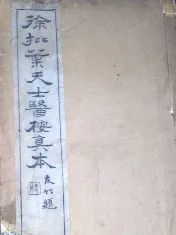 徐批葉天士醫案真本
友竹題